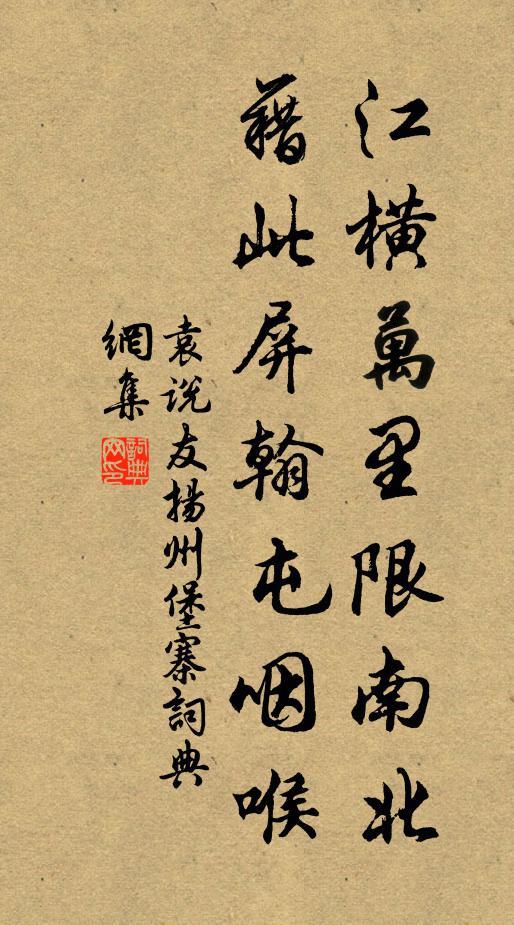 江橫萬里限南北
藉此屏翰屯咽喉
袁說友揚州堡寨詞典
網集
詞典網印